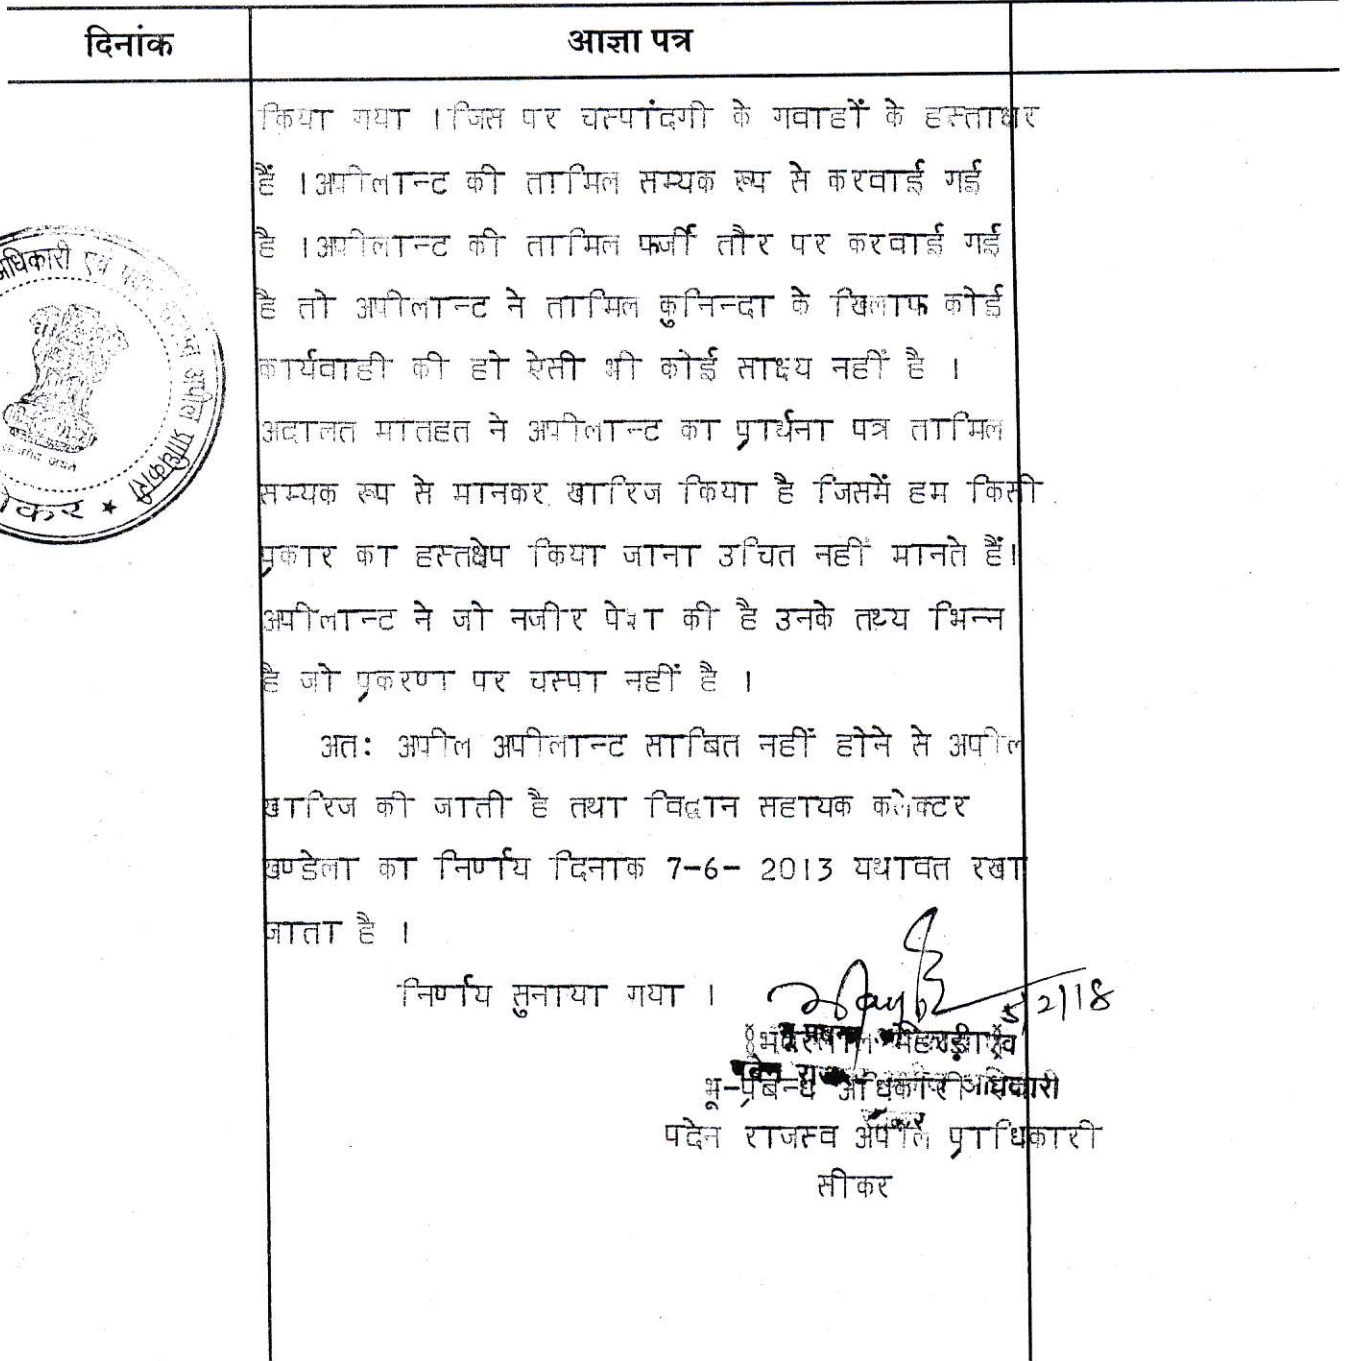 दिनांक आज्ञा पत्र
किया गया ।जिस पर चस्पांदगी के गवाहों के हस्ताक्षर
हैं ।अपीलान्ट की तामिल सम्यक रूप से करवाई गई
है ।अपीलान्ट की तामिल फर्जी तौर पर करवाई गई
है तो अपीलान्ट ने तामिल कुनिन्दा के खिलाफ कोई
कार्यवाही की हो ऐसी भी कोई साक्ष्य नहीं है ।
अदालत मातहत ने अपीलान्ट का प्रार्थना पत्र तामिल
सम्यक रूप से मानकर खारिज किया है जिसमें हम किसी
प्रकार का हस्तक्षेप किया जाना उचित नहीं मानते हैं।
अपीलान्ट ने जो नजीर पेश की है उनके तथ्य भिन्न
है जो प्रकरण पर चस्पा नहीं है ।
अतः अपील अपीलान्ट साबित नहीं होने से अपील
खारिज की जाती है तथा विद्वान सहायक कलेक्टर
खण्डेला का निर्णय दिनाक 7-6- 2013 यथावत रखा
जाता है ।
निर्णय सुनाया गया ।
5/2/18
भू-प्रबन्ध अधिकारी
पदेन राजस्व अपील प्राधिकारी
सीकर
अधिकारी एवं अपील प्राधिकारी